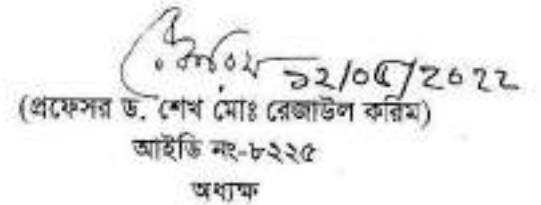 ১২/০৫/2022
(প্রফেসর ড. শেখ মোঃ রেজাউল করিম)
আইডি নং-৮২২৫
অধ্যক্ষ